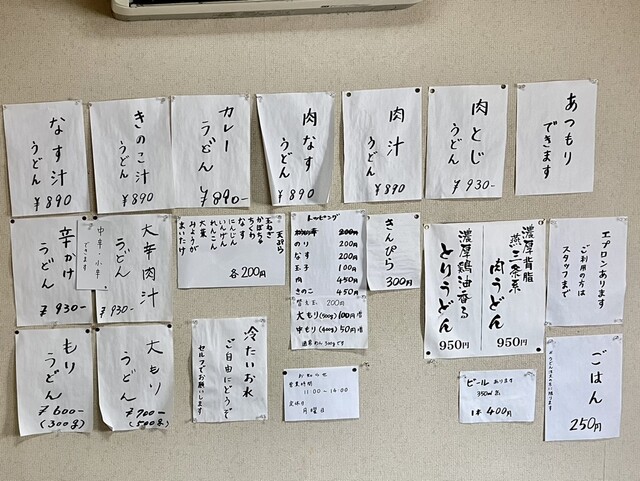 なす汁
うどん
¥890
きのこ汁
うどん
¥890
カレー
うどん
¥890-
肉なす
うどん
¥890
肉汁
うどん
¥890
肉とじ
うどん
¥930-
あつもり
できます
辛かけ
うどん
¥930-
中辛・小辛
できます
大辛肉汁
うどん
¥930-
天ぷら
玉ねぎ
かぼちゃ
ちくわ
にんじん
なす
いんげん
れんこん
大葉
みょうが
まいたけ
各200円
トッピング
200円
のり 200円
なす 200円
玉子 100円
肉 450円
きのこ 450円
替え玉 200円
大もり(500g)100円増
中もり(400g)50円増
きんぴら
300円
濃厚背脂
燕三条系
肉うどん
950円
濃厚鶏油香る
とりうどん
950円
エプロンあります
ご利用の方は
スタッフまで
もり
うどん
¥600-
(300g)
大もり
うどん
¥700-
(500g)
冷たいお水
ご自由にどうぞ
セルフでお願いします
お知らせ
営業時間
11:00-14:00
定休日
月曜日
ビール あります
350ml缶
1本 400円
ごはん
250円